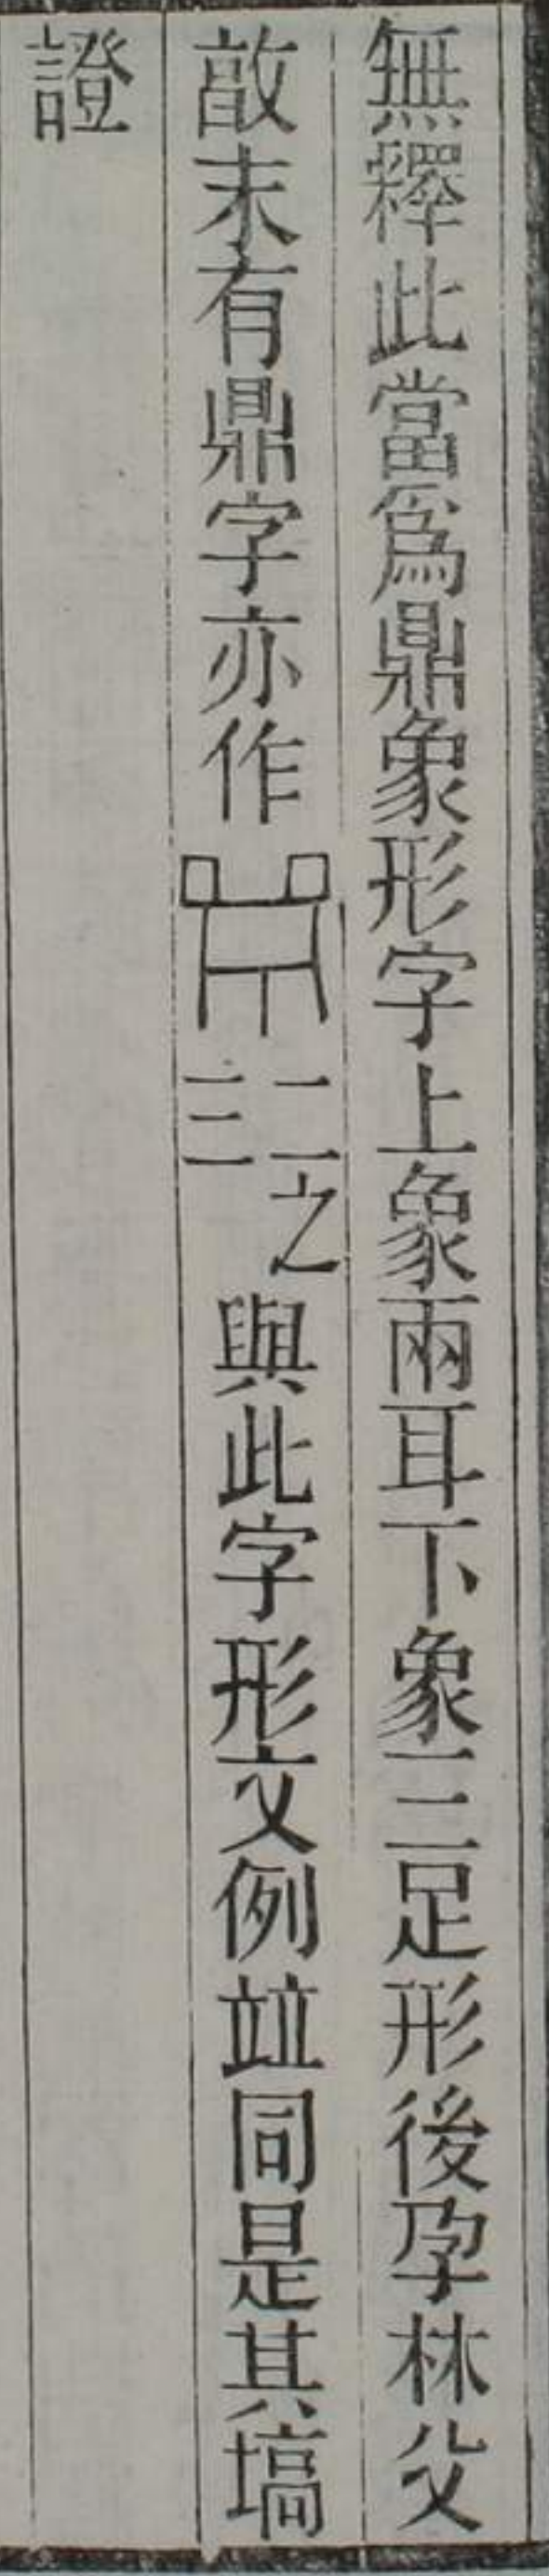 無釋此當爲鼎象形字上象兩耳下象三足形後孕林父
敃末有鼎字亦作二之二三與此字形文例竝同是其塙
證